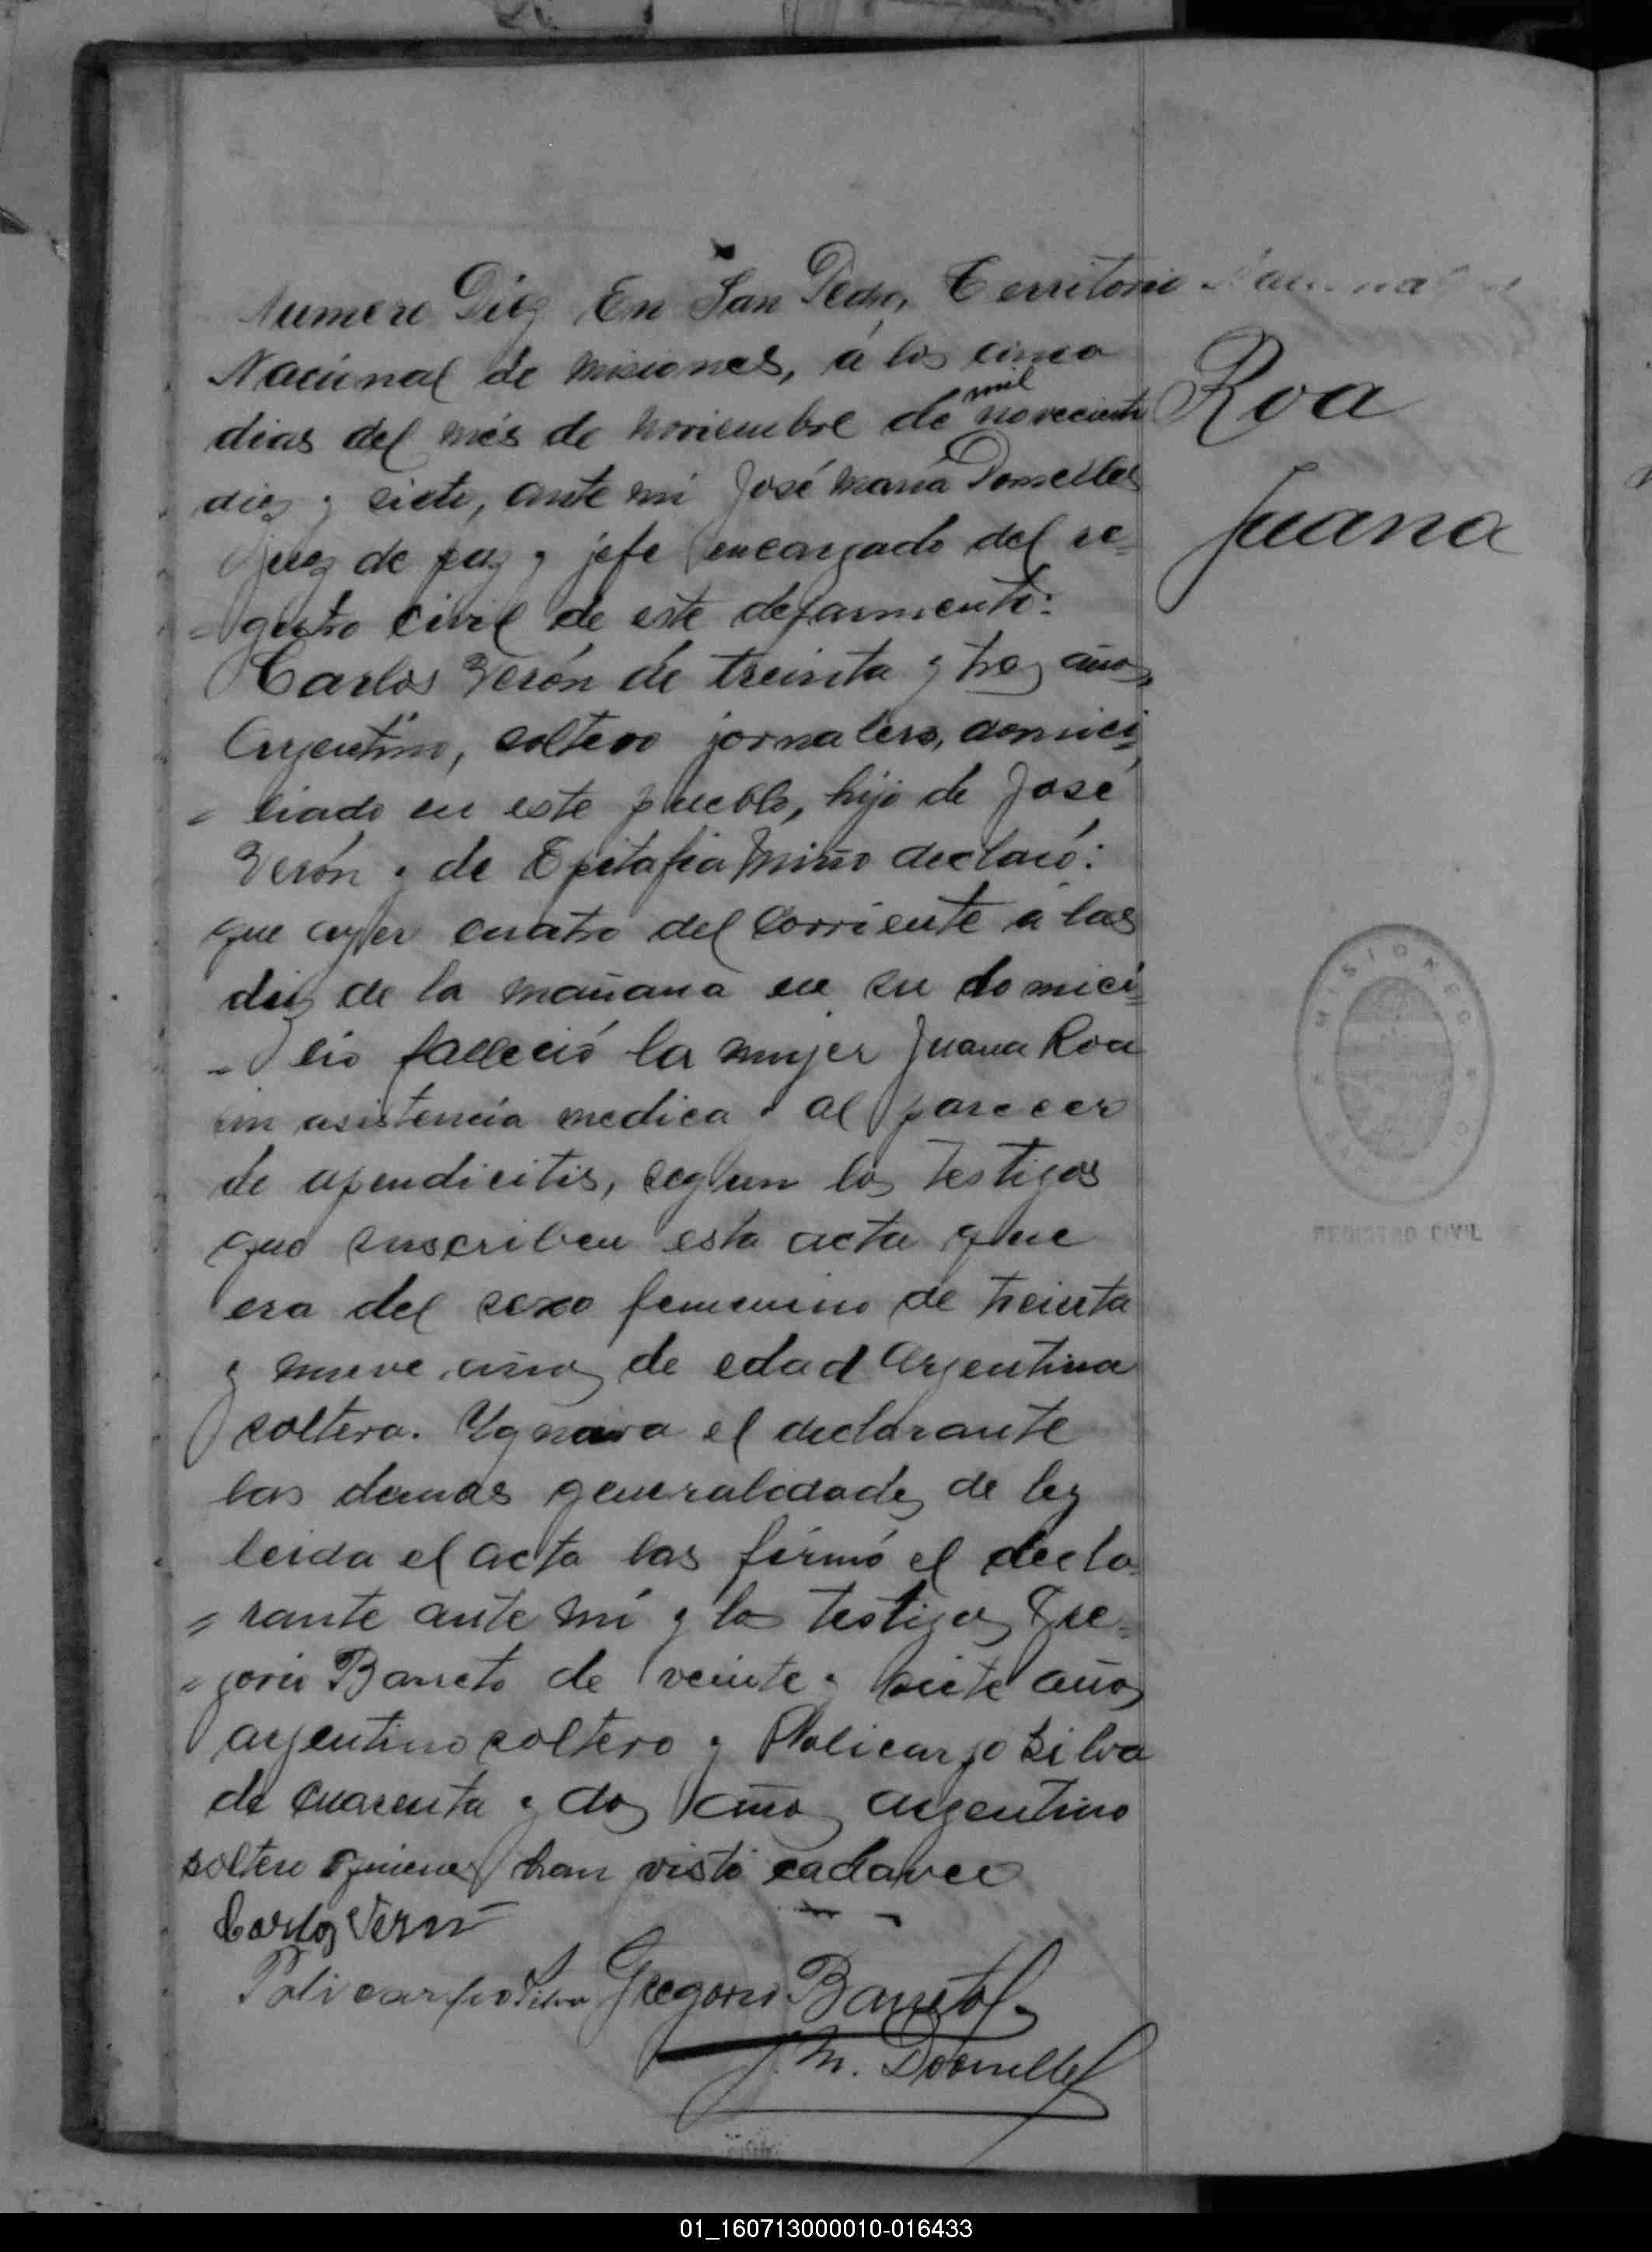 Numero Diez En San Pedro, Territorio
Nacional de misiones, á los cinco
mil
dias del més de noviembre de novecientos
diez y siete, ante mi José María Dornelles
Juez de paz y jefe encargado del re=
=gistro civil de este departamento:
Carlos Verón de treinta y tres años,
Argentino, soltero jornalero, domici=
=liado en este pueblo, hijo de José
Verón y de Epitafia Miño declaró:
que ayer cuatro del Corriente á las
diez de la mañana en su domici=
=lio falleció la mujer Juana Roa
sin asistencia medica y al parecer
de apendicitis, segun los testigos
que suscriben esta acta que
era del sexo femenino de treinta
y nueve años de edad Argentina
soltera. Ygnora el declarante
las demas generalidades de ley
leida el acta las firmó el decla=
=rante ante mí y los testigos Gre=
=gorio Barreto de veinte y siete años
argentino soltero y Policarpo Silva
de cuarenta y dos años argentino
soltero quienes han visto cadaver
Carlos Verón
Policarpo Silva Gregorio Barreto
J. M. Dornelles
Roa
Juana
MISIONES
REGISTRO CIVIL
01_160713000010-016433